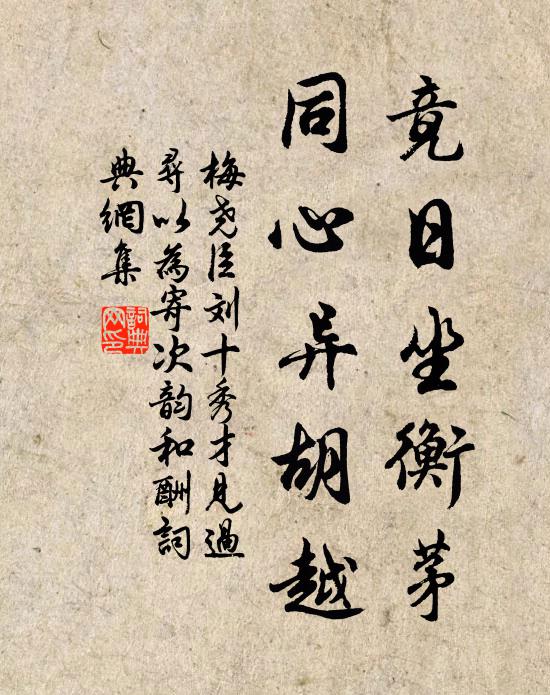 竟日坐衡茅
同心异胡越
梅尧臣刘十秀才见過
尋以為寄次韵和酬詞
典網集
詞典网印